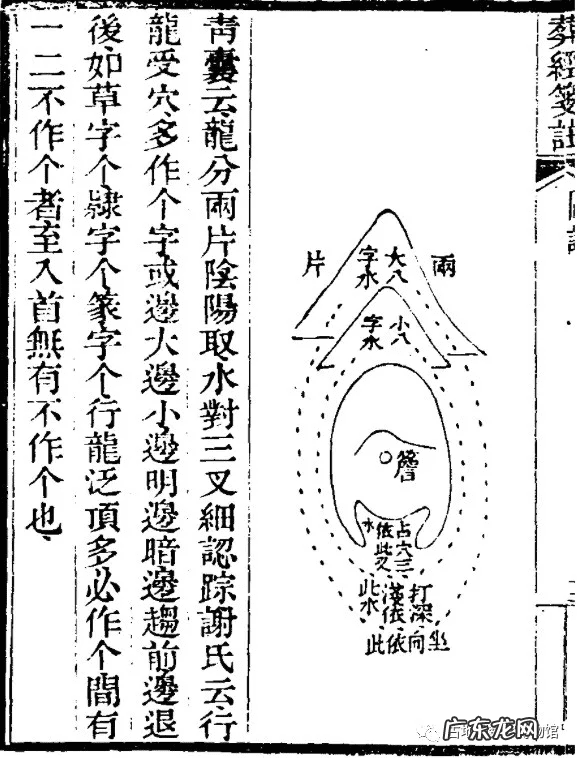 葬經箋註
兩
片
大八
字水
小八
字水
簷
占穴三
依此叉
水
打深
淺依
此水
坐向依此
青囊云、龍分兩片陰陽取、水對三叉細認踪、謝氏云、行
龍受穴、多作个字、或邊大邊小、邊明邊暗、邊趨前邊退
後、如草字个、隸字个、篆字个、行龍泛頂、多必作个、間有
一二不作个者、至入首無有不作个也、
广东龙网
物馆